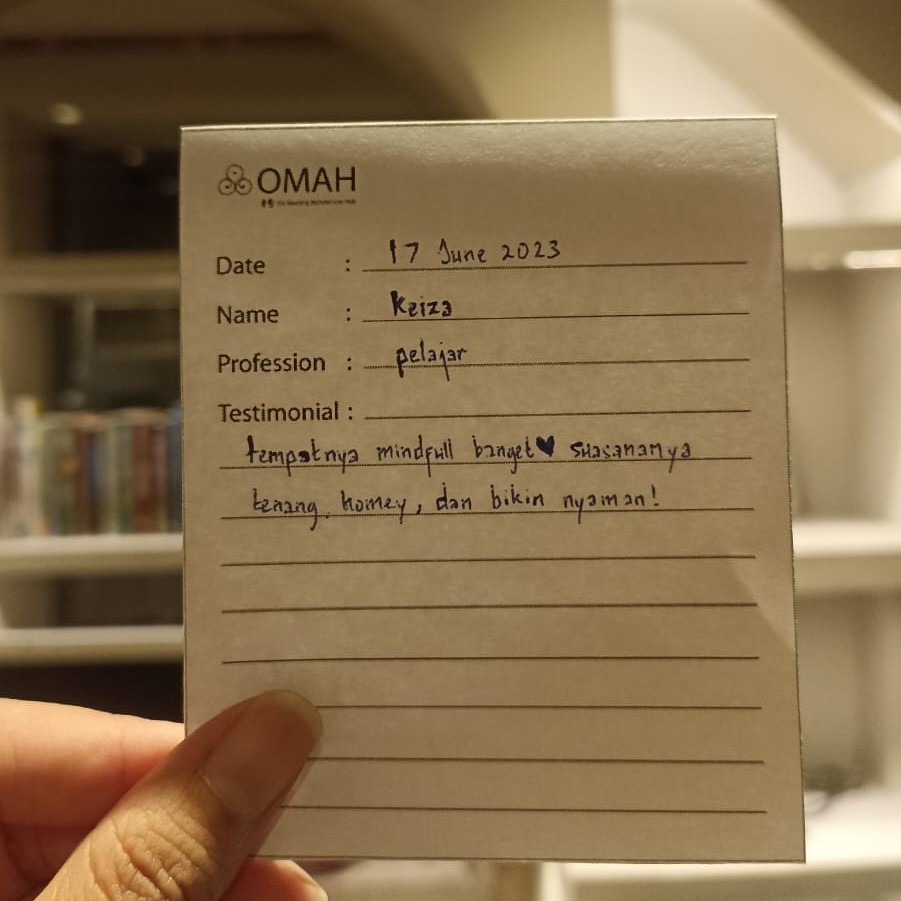 OMAH
Date : 17 June 2023
Name : Keiza
Profession : pelajar
Testimonial :
tempatnya mindfull banget♥ suasananya
tenang, homey, dan bikin nyaman!